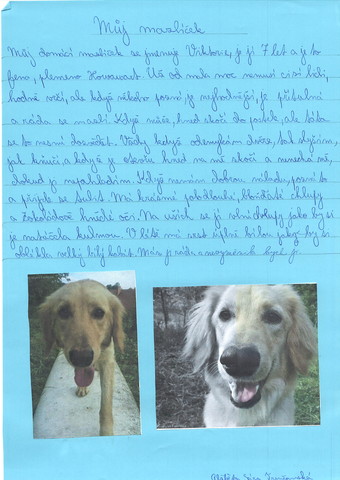 Můj mazlíček
Můj domácí mazlíček se jmenuje Viktorie, je jí 7 let a je to
fena, plemeno Hovawart. Už od mala moc nemusí cizí lidi,
hodně vrčí, ale když někoho pozná je nejhodnější, je přítulná
a ráda se mazlí. Když může, hned skočí do postele, ale táta
se to nesmí dozvědět. Vždy kdy odemykám dveře, tak slyším,
jak kňučí, a když je otevřu hned na mě skočí a neuhne mě,
dokud ji nepohladím. Když nemám dobrou náladu, pozná to
a přijde se tulit. Má krásné zlaté dlouhé, chlupy
a čokoládově hnědé oči. Na uších se jí vlní chlupy jako by si
je natáčela kulmou. V létě má srst úplně bílou jako by si
oblékla velký bílý kabát. Mám ji ráda a nevyměnila bych ji.